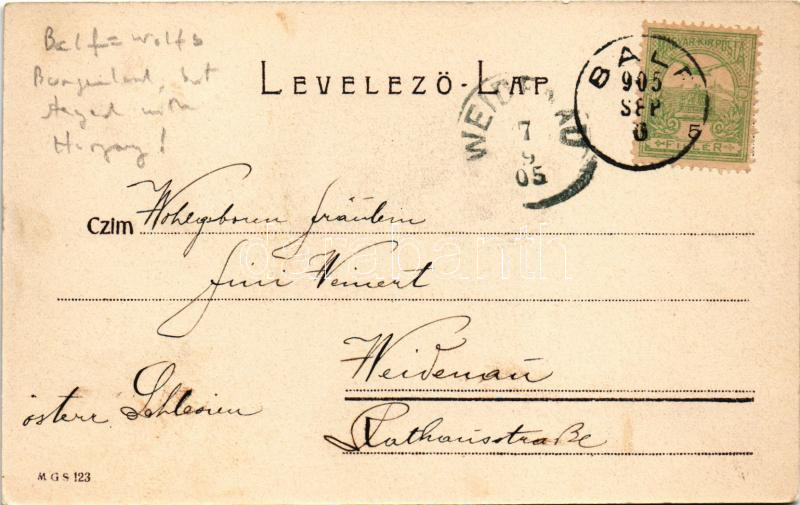 Balf = Wolfs
Burgenland, but
stayed with
Hungary!
LEVELEZŐ-LAP
MAGYAR KIR. POSTA
5
FILLÉR
BALF
905
SEP
6
WEIDENAU
7
9
05
Czim Wohlgeboren Fräulein
Fini Weinert
Weidenau
österr. Schlesien
Rathausstraße
darabanth
M G S 123